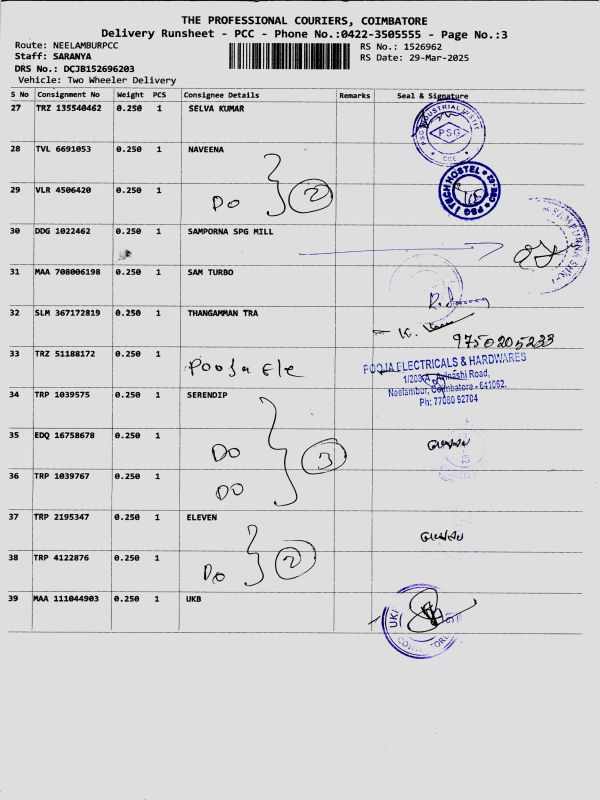 THE PROFESSIONAL COURIERS, COIMBATORE
Delivery Runsheet - PCC - Phone No.:0422-3505555 - Page No.:3
Route: NEELAMBURPCC
RS No.: 1526962
Staff: SARANYA
RS Date: 29-Mar-2025
DRS No.: DCJB152696203
Vehicle: Two Wheeler Delivery
S No Consignment No Weight PCS Consignee Details Remarks Seal & Signature
27 TRZ 135540462 0.250 1 SELVA KUMAR
PSG INDUSTRIAL INSTIT
PSG
CBE
28 TVL 6691053 0.250 1 NAVEENA
29 VLR 4506420 0.250 1 Do 2
PSG I TECH HOSTEL
30 DDG 1022462 0.250 1 SAMPORNA SPG MILL
31 MAA 708006198 0.250 1 SAM TURBO
32 SLM 367172819 0.250 1 THANGAMMAN TRA
9750205233
33 TRZ 51188172 0.250 1 Pooja Ele
POOJA ELECTRICALS & HARDWARES
1/208-A, Avinashi Road,
Neelambur, Coimbatore - 641062.
Ph: 77080 92704
34 TRP 1039575 0.250 1 SERENDIP
35 EDQ 16758678 0.250 1 Do 3
36 TRP 1039767 0.250 1 Do
37 TRP 2195347 0.250 1 ELEVEN
38 TRP 4122876 0.250 1 Do 2
39 MAA 111044903 0.250 1 UKB